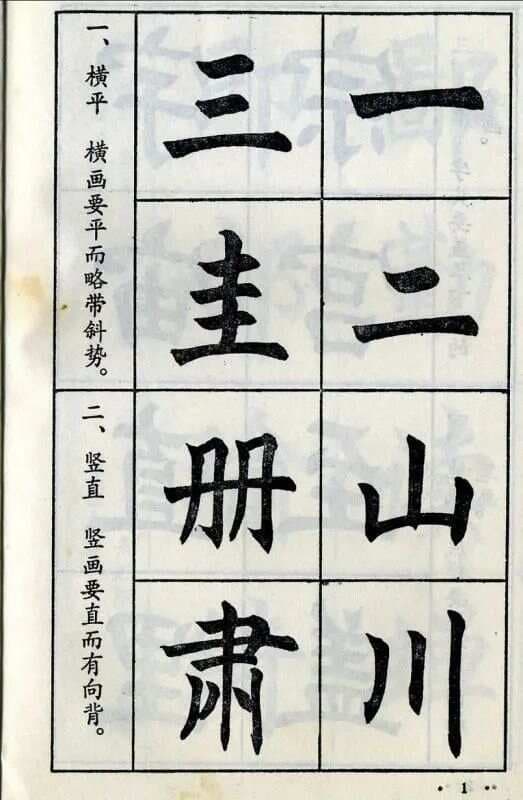 一
二
三
圭
一、横平 横画要平而略带斜势。
山
川
册
肃
二、竖直 竖画要直而有向背。
1